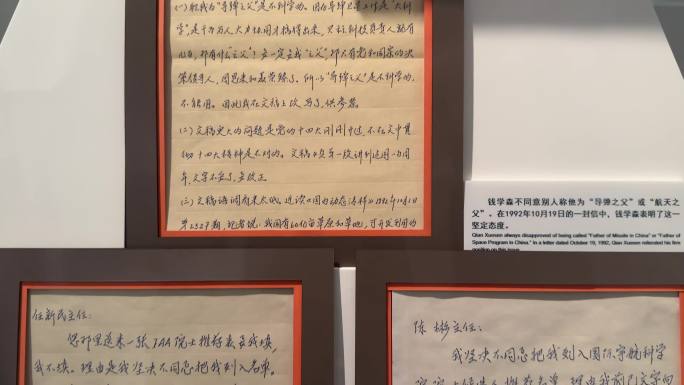 (一)把我为“导弹之父”是不科学的。因为导弹卫星工作是“大科
学”，是千百万人大力协同才搞得出来，只算科技负责人就有
几百，那有什么“之父”！ 要一定说“之父”，那只有党和国家的决
策领导人，周恩来和聂荣臻了。所以“导弹之父”是不科学的，
不能用。因此我在文稿上改
了，供参考。
(二)文稿更大的问题是党的十四大刚刚开过，不在文中
的十四大精神是不对的。文稿
年，文字不妥，要改正。
(三)文稿语调
第2527期，记者说：我国有60亿亩草原和草地，可开发利用的
钱学森不同意别人称他为“导弹之父”或“航天之
父”。在1992年10月19日的一封信中，钱学森表明了这一
坚定态度。
Qian Xuesen always disapproved of being called "Father of Missile in China" or "Father of
Space Program in China." In a letter dated October 19, 1992, Qian Xuesen reiterated his firm
position on this issue.
任新民主任：
您那里送来一张IAA院士推荐表要我填，
我不填。理由是我坚决不同意把我列入名单。
陈彬主任：
我坚决不同意把我列入国际宇航科学